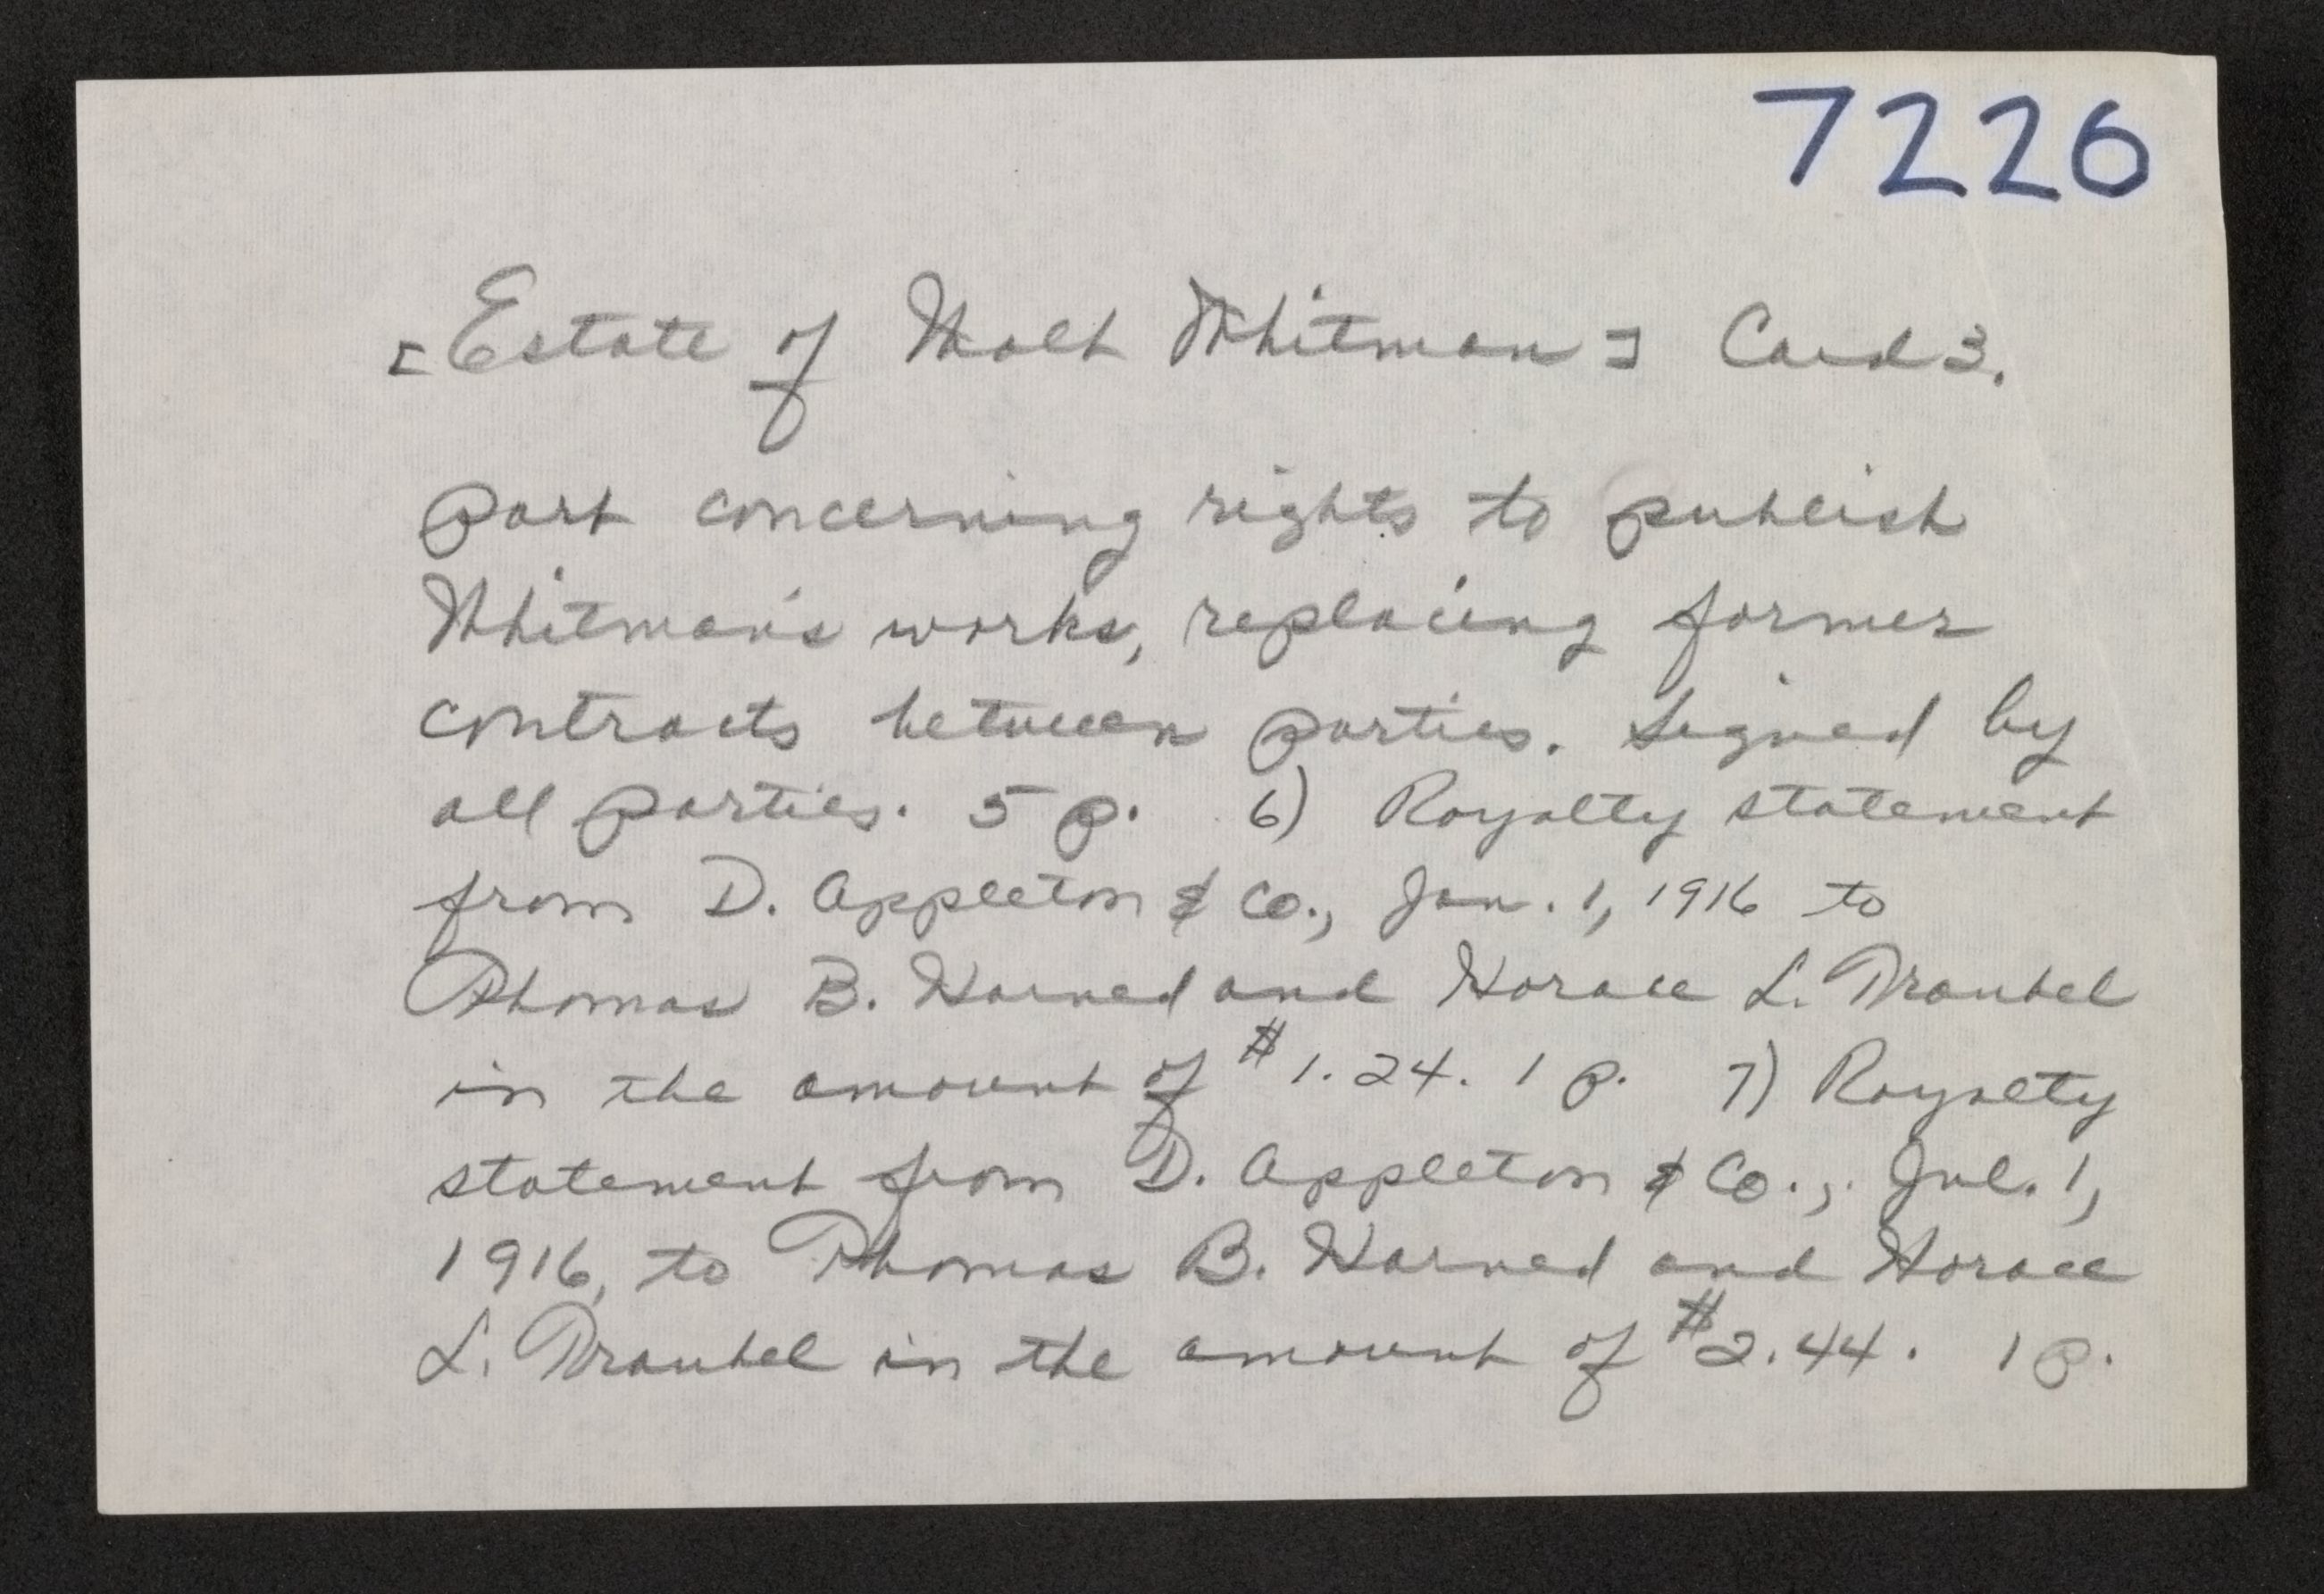 7226
[Estate of Walt Whitman] Card 3.
part concerning rights to publish
Whitman's works, replacing former
contracts between parties. Signed by
all parties. 5 p. 6) Royalty statement
from D. Appleton & Co., Jan. 1, 1916 to
Thomas B. Harned and Horace L. Traubel
in the amount of $1.24. 1 p. 7) Royalty
statement from D. Appleton & Co., Jul. 1,
1916, to Thomas B. Harned and Horace
L. Traubel in the amount of $2.44. 1 p.